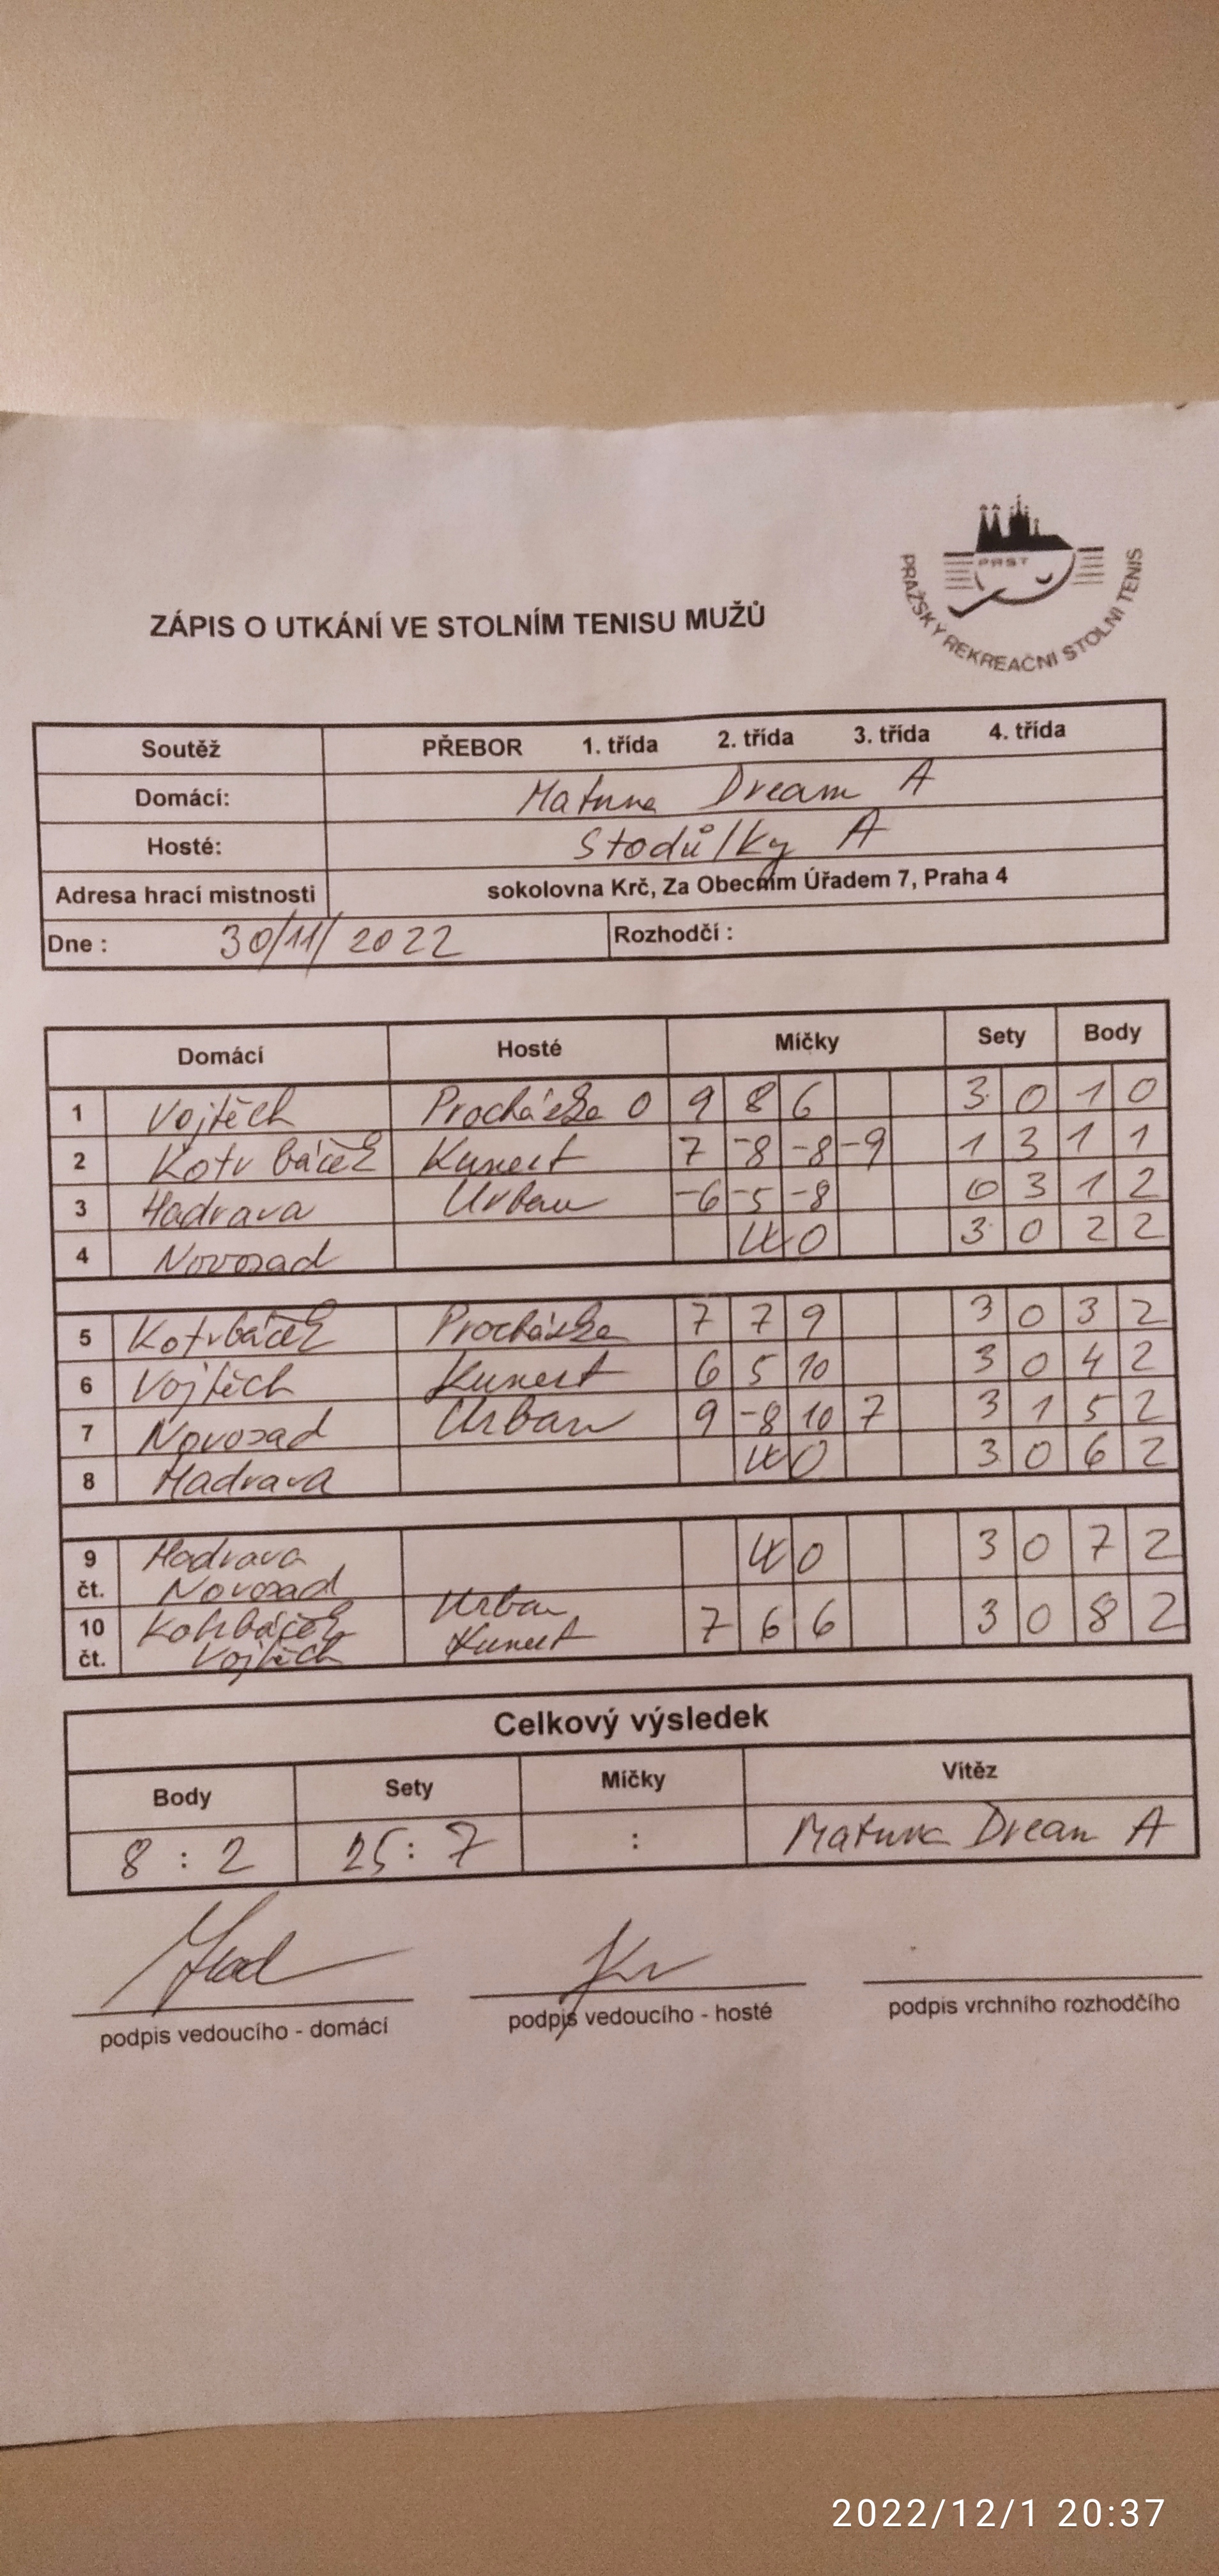 PRST
PRAŽSKÝ REKREAČNÍ STOLNÍ TENIS
ZÁPIS O UTKÁNÍ VE STOLNÍM TENISU MUŽŮ
Soutěž PŘEBOR 1. třída 2. třída 3. třída 4. třída
Domácí: Matuna Dream A
Hosté: Stodůlky A
Adresa hrací mistnosti sokolovna Krč, Za Obecním Úřadem 7, Praha 4
Dne : 30/11/2022 Rozhodčí :
Domácí Hosté Míčky Sety Body
1 Vojtěch Procházka O 9 8 6 3 0 1 0
2 Kotrbáček Kunert 7 -8 -8 -9 1 3 1 1
3 Hadrava Urban -6 -5 -8 0 3 1 2
4 Novosad W0 3 0 2 2
5 Kotrbáček Procházka 7 7 9 3 0 3 2
6 Vojtěch Kunert 6 5 10 3 0 4 2
7 Novosad Urban 9 -8 10 7 3 1 5 2
8 Hadrava W0 3 0 6 2
9 Hadrava W0 3 0 7 2
čt. Novosad
10 Kotrbáček Urban 7 6 6 3 0 8 2
čt. Vojtěch Kunert
Celkový výsledek
Body Sety Míčky Vítěz
8 : 2 25 : 7 : Matuna Dream A
podpis vedoucího - domácí podpis vedoucího - hosté podpis vrchního rozhodčího
2022/12/1 20:37